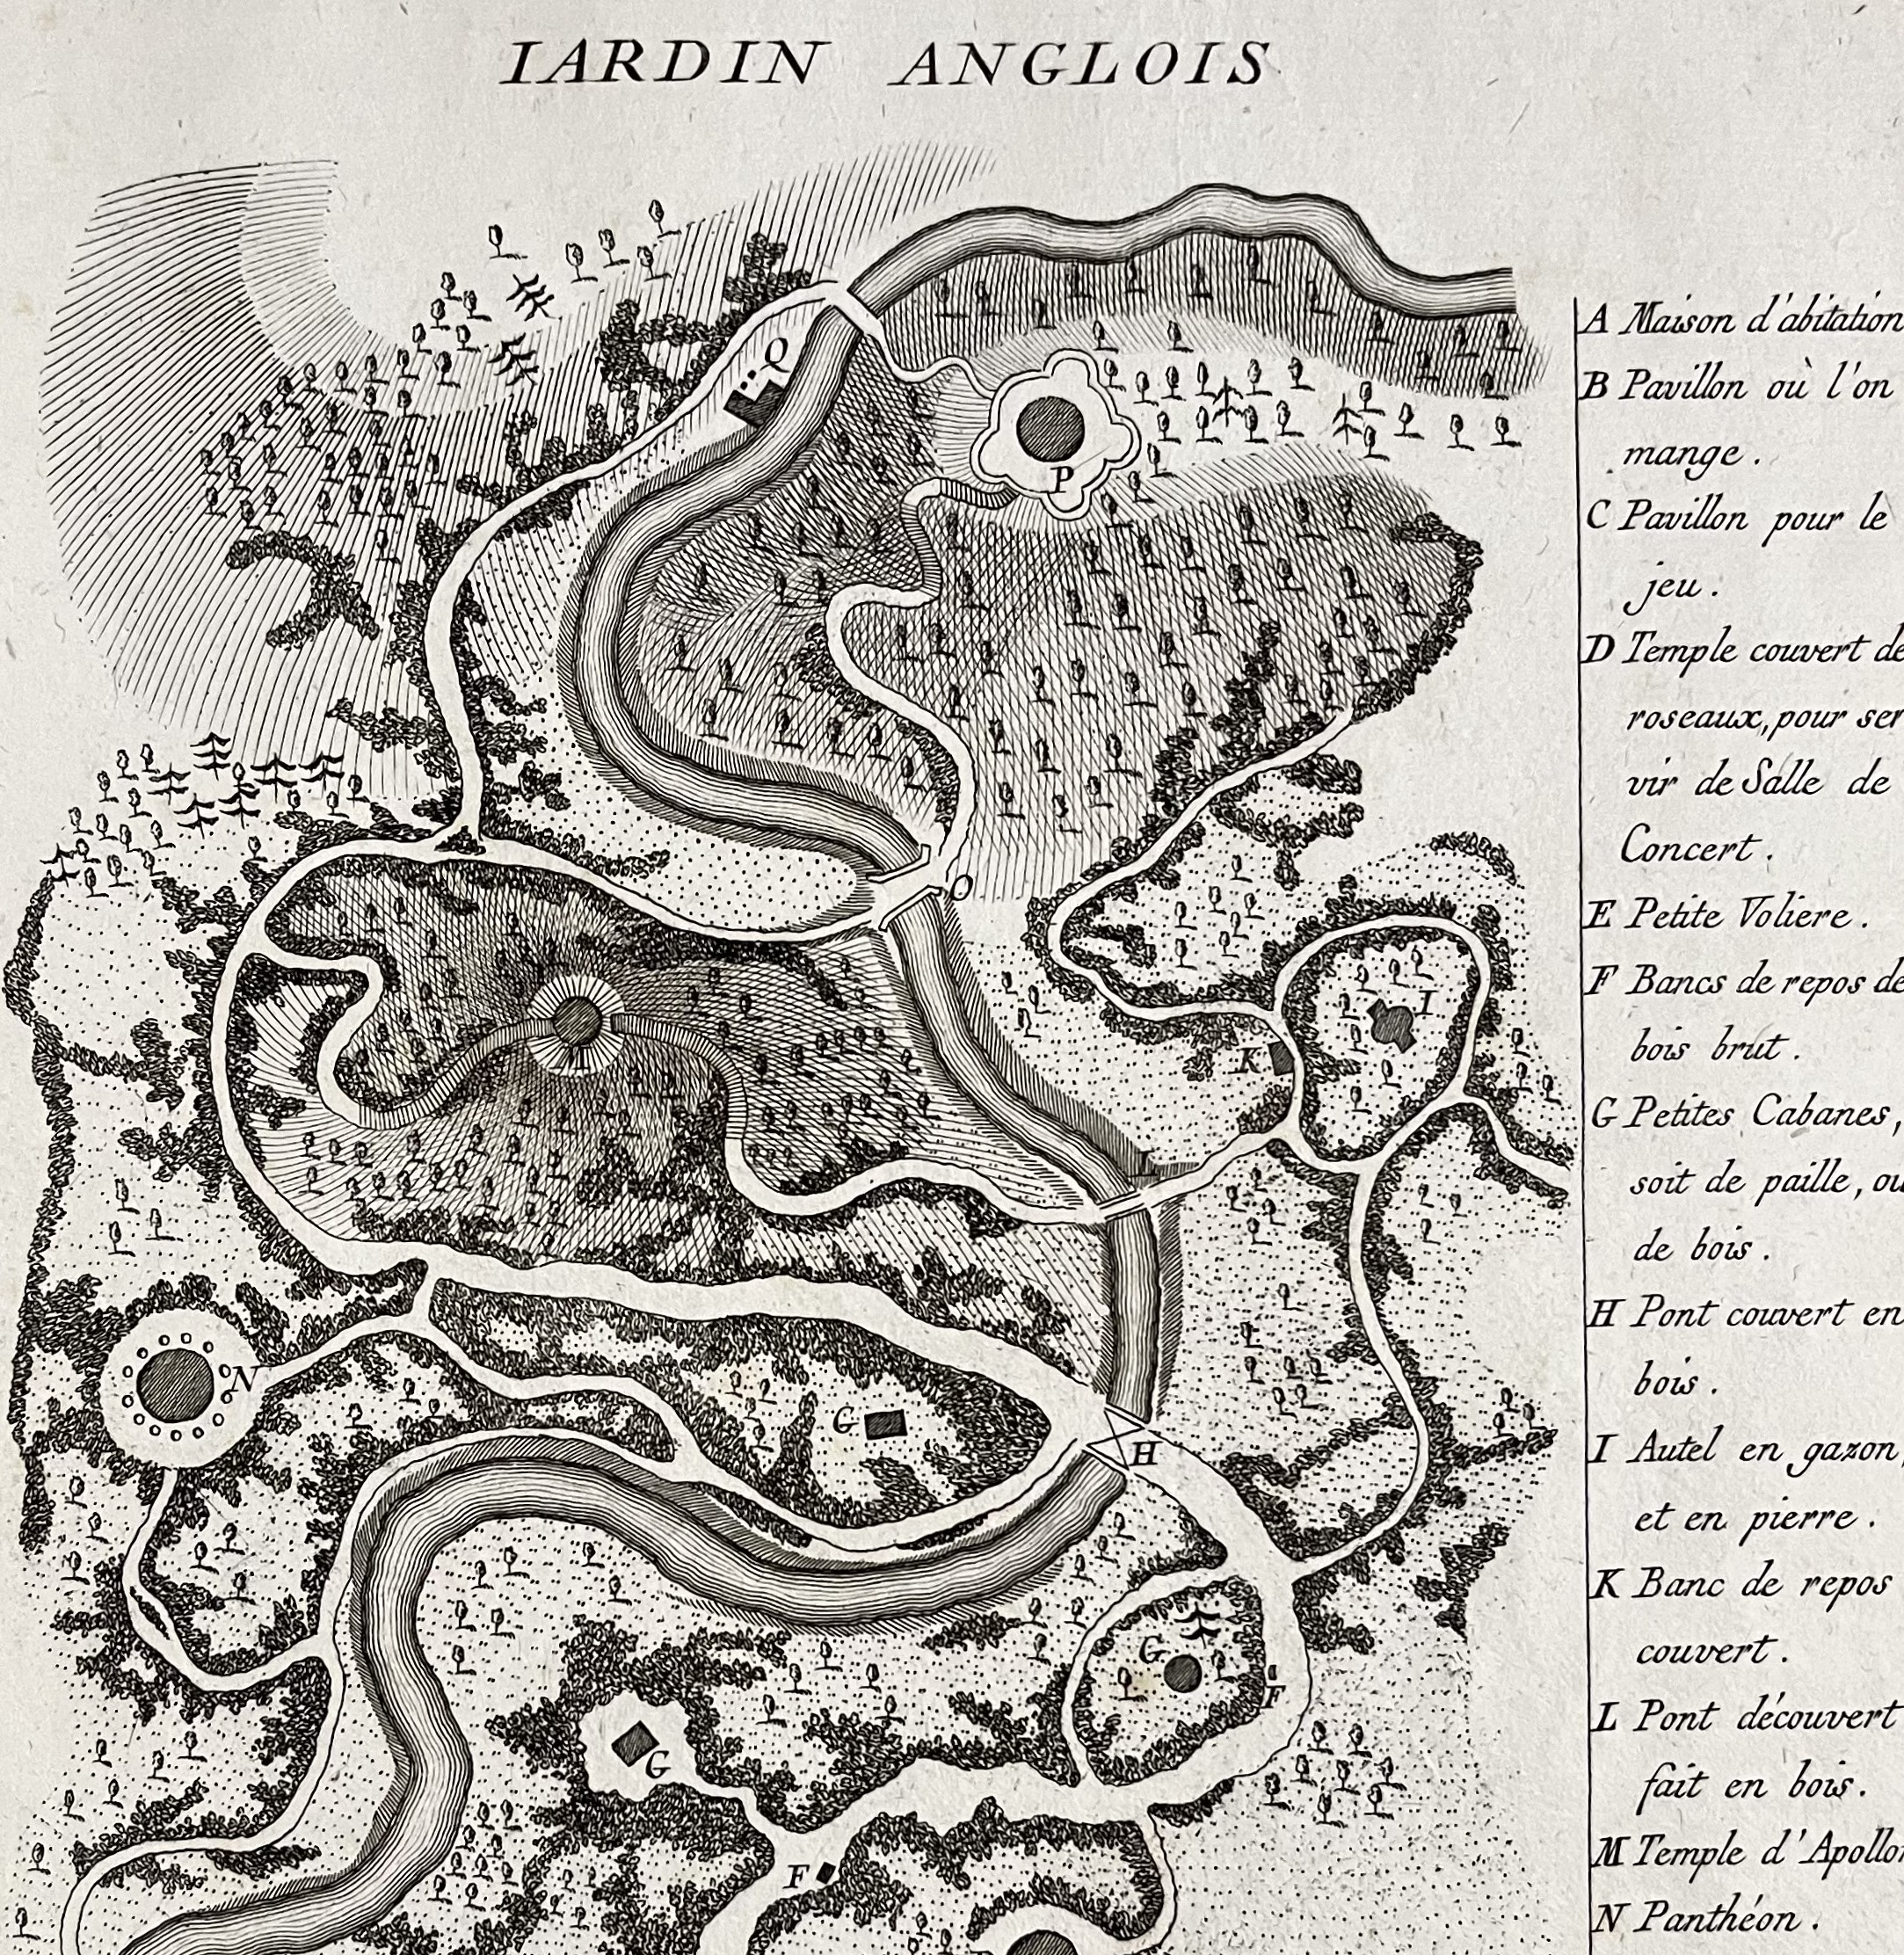 IARDIN ANGLOIS
Q
P
O
I
K
L
M
N
G
H
G
F
G
F
A Maison d'abitation
B Pavillon où l'on
mange.
C Pavillon pour le
jeu.
D Temple couvert de
roseaux, pour ser
vir de Salle de
Concert.
E Petite Voliere.
F Bancs de repos de
bois brut.
G Petites Cabanes,
soit de paille, ou
de bois.
H Pont couvert en
bois.
I Autel en gazon,
et en pierre.
K Banc de repos
couvert.
L Pont découvert
fait en bois.
M Temple d'Apollon
N Panthéon.